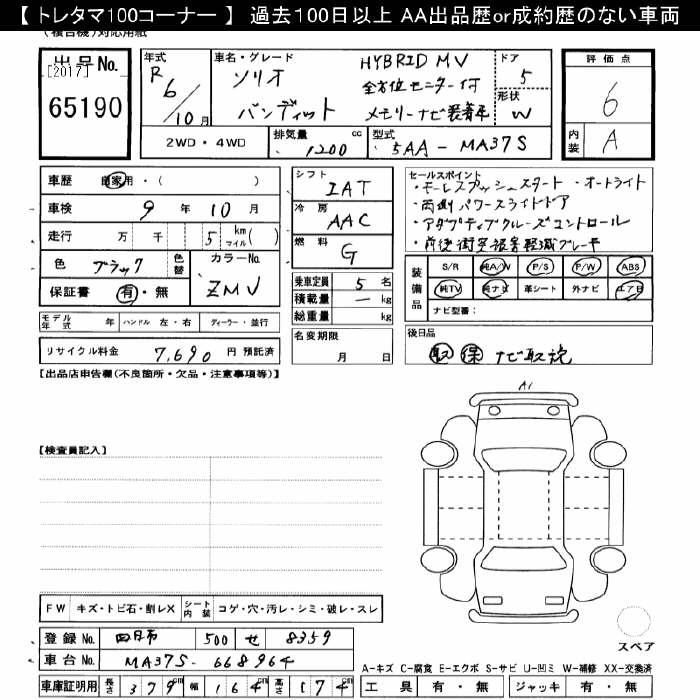 【 トレタマ100コーナー 】 過去100日以上 AA出品歴or成約歴のない車両
(複合機)対応用紙
出品No.
[2017]
65190
年式 R6/10月
車名・グレード
ソリオ HYBRID MV
バンディット 全方位モニター付
メモリーナビ装着車
ドア 5
形状 W
2WD・4WD
排気量 1200 cc
型式 5AA-MA37S
評価点
6
内装 A
車歴 自家用・( )
車検 9年 10月
走行 万 千 5 km マイル( )
色 ブラック 色替 カラーNo. ZMV
保証書 有・無
モデル年式 年 ハンドル 左・右 ディーラー・並行
リサイクル料金 7,690 円 預託済
シフト IAT
冷房 AAC
燃料 G
乗車定員 5 名
積載量 ー kg
総重量 kg
名変期限
月 日
セールスポイント
・キーレスプッシュスタート ・オートライト
・両側パワースライドドア
・アダプティブクルーズコントロール
・前後衝突被害軽減ブレーキ
装備品 S/R 純A/W P/S P/W ABS
純TV 純ナビ 革シート 外ナビ エアB
ナビ型番:
後日品
取 保 ナビ取説
【出品店申告欄(不良箇所・欠品・注意事項等)】
A1
【検査員記入】
FW キズ・トビ石・割レX シート内装 コゲ・穴・汚レ・シミ・破レ・スレ
登録No. 四日市 500 せ 8359
車台No. MA37S-668964
車庫証明用 長さ 379cm 幅 164cm 高さ 174cm
スペア
A-キズ C-腐食 E-エクボ S-サビ U-凹ミ W-補修 XX-交換済
工具 有・無 ジャッキ 有・無